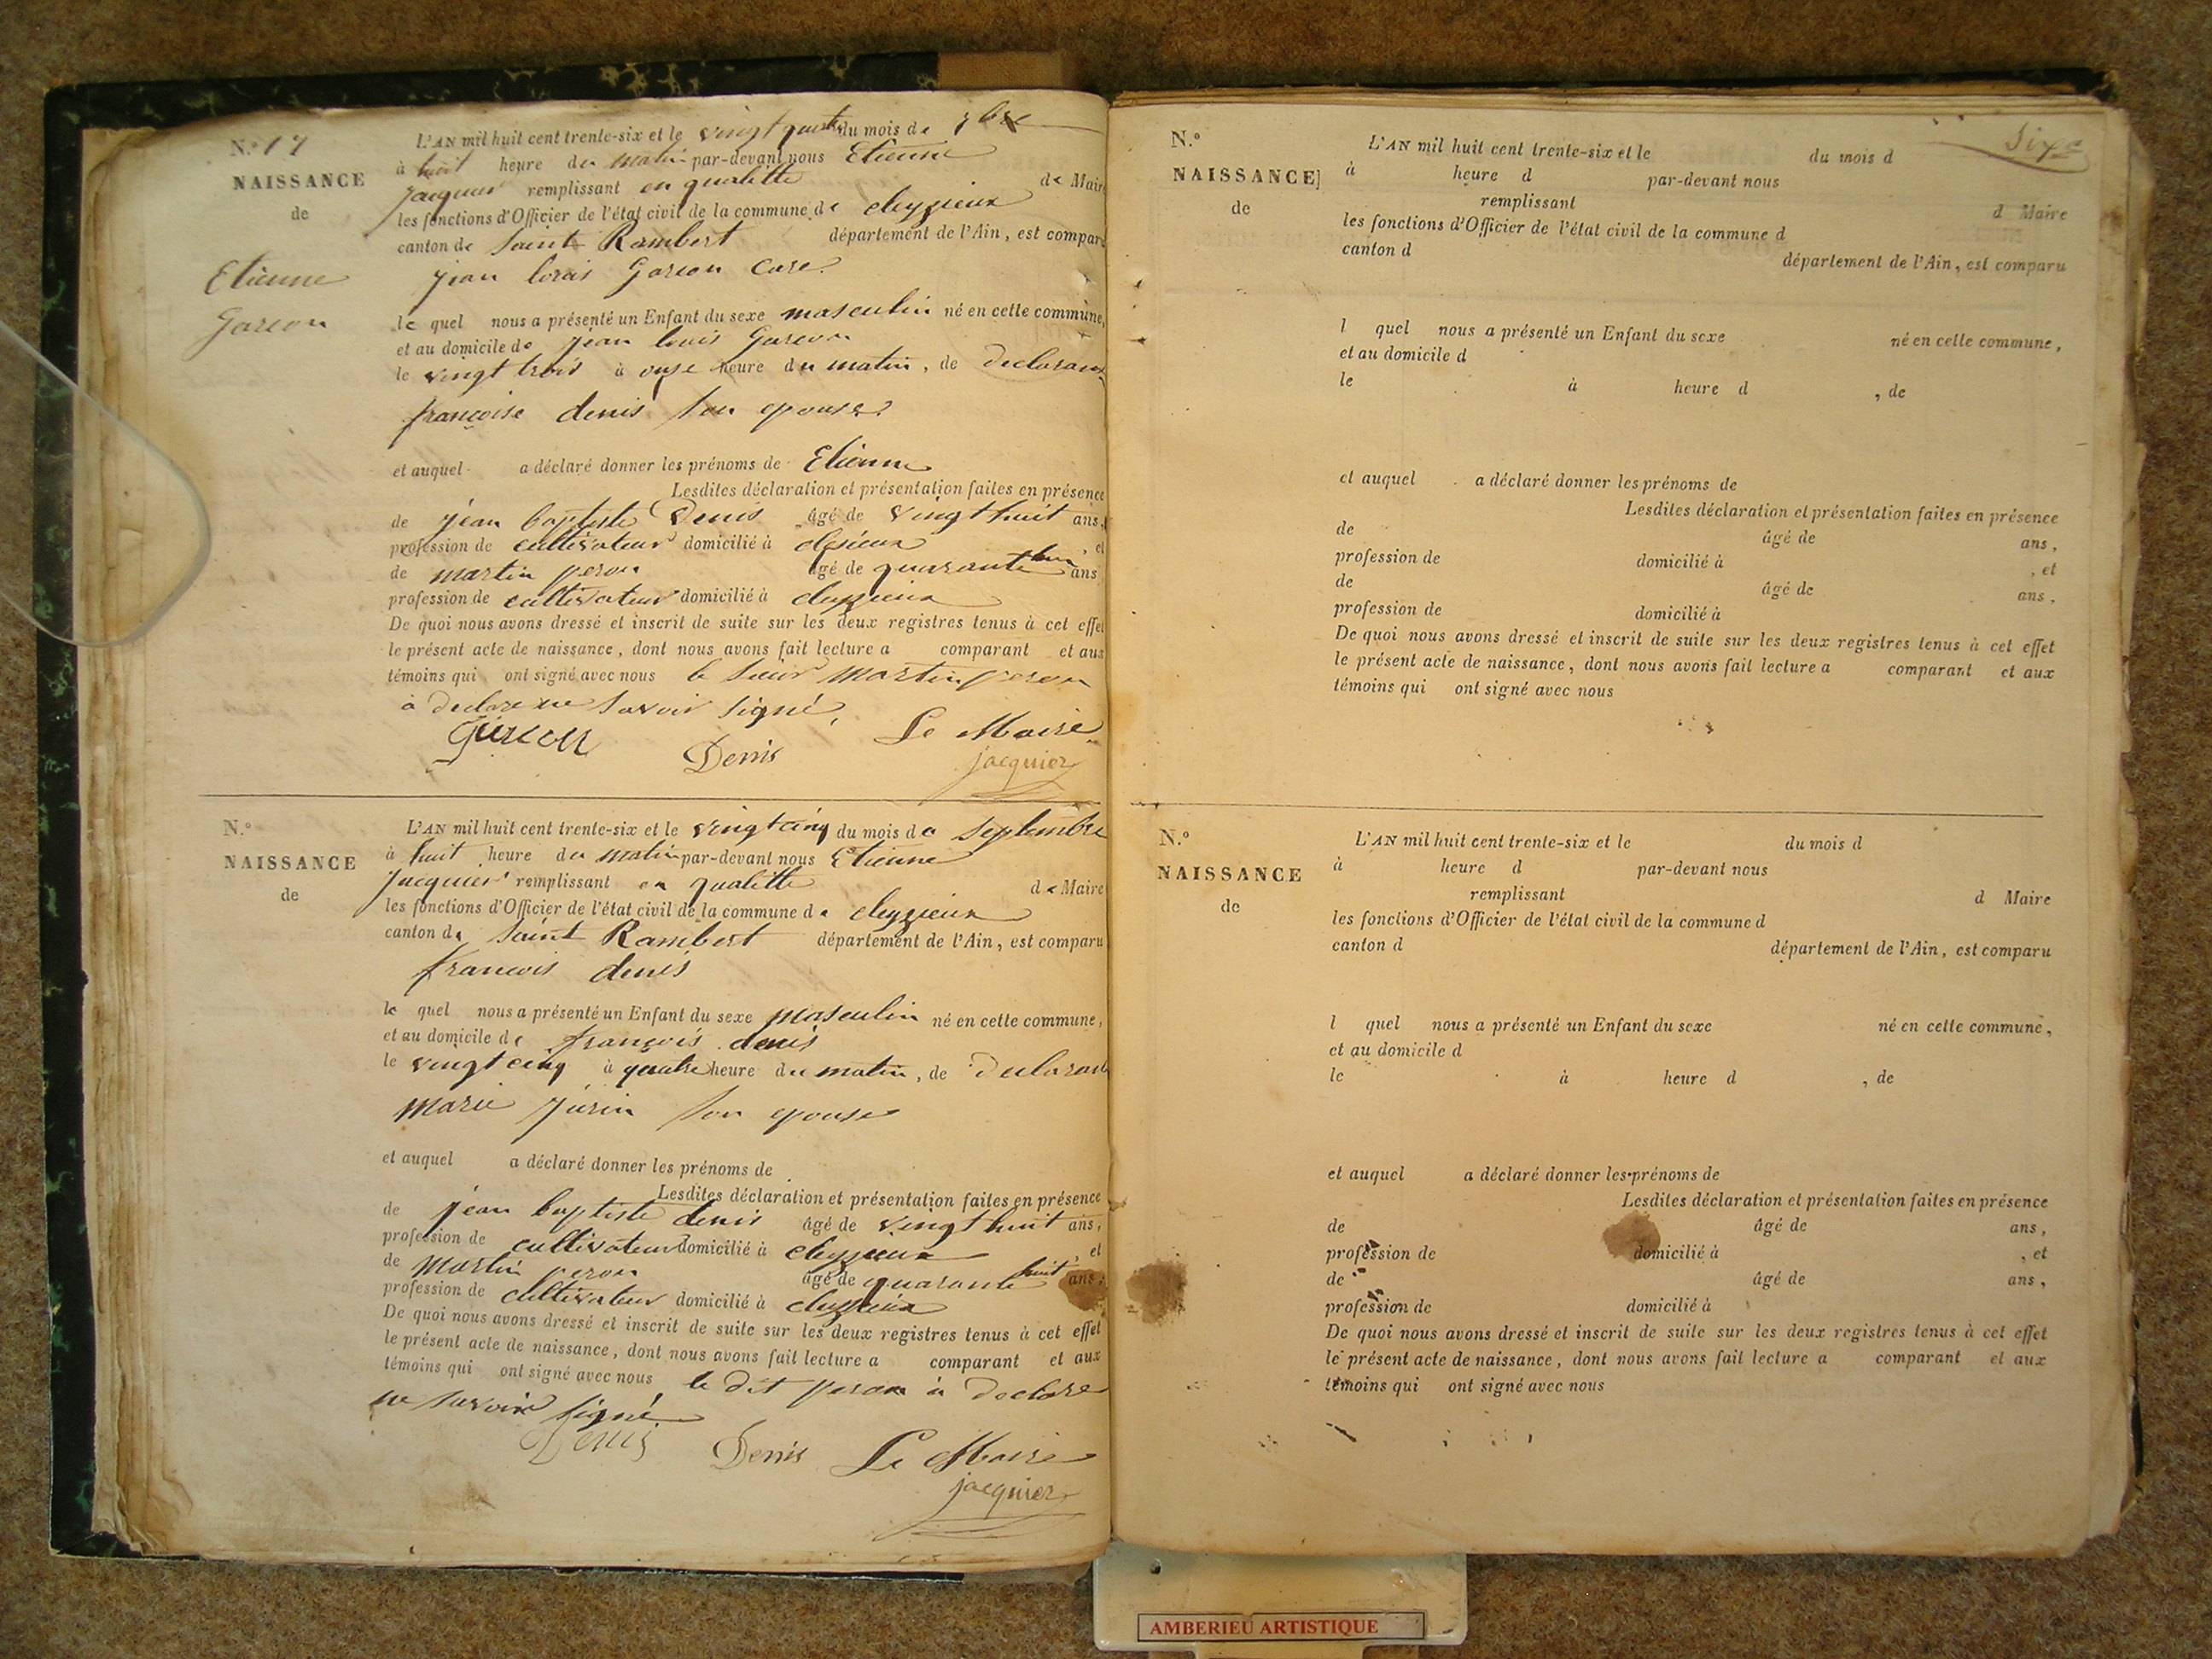 N.º 17
NAISSANCE
de
Etienne
Garcon
L'AN mil huit cent trente-six et le vingt quatre du mois de 7bre
à huit heure du matin par-devant nous Etienne
jacquier remplissant en qualitte de Maire
les fonctions d'Officier de l'état civil de la commune de cleyzieux
canton de Saint Rambert département de l'Ain, est comparu
jean louis Garcon
le quel nous a présenté un Enfant du sexe masculin né en cette commune,
et au domicile de jean louis Garcon
le vingt trois à onze heure du matin, de declarant
françoise denis son epouse
et auquel a déclaré donner les prénoms de Etienne
Lesdites déclaration et présentation faites en présence
de jean baptiste Denis âgé de vingt huit ans,
profession de cultivateur domicilié à clesieux , et
de martin peron âgé de quarante huit ans
profession de cultivateur domicilié à cleyzieux
De quoi nous avons dressé et inscrit de suite sur les deux registres tenus à cet effet
le présent acte de naissance, dont nous avons fait lecture a comparant et aux
témoins qui ont signé avec nous le sieur Martin peron
a declare ne savoir signé,
Garcon Denis Le Maire
jacquier
N.º
NAISSANCE
de
L'AN mil huit cent trente-six et le vingt cinq du mois de Septembre
à huit heure du matin par-devant nous Etienne
jacquier remplissant en qualitte de Maire
les fonctions d'Officier de l'état civil de la commune de cleyzieux
canton de Saint Rambert département de l'Ain, est comparu
francois denis
le quel nous a présenté un Enfant du sexe masculin né en cette commune,
et au domicile de françois denis
le vingt cinq à quatre heure du matin, de declarant
Marie jurin son epouse
et auquel a déclaré donner les prénoms de
Lesdites déclaration et présentation faites en présence
de jean baptiste denis âgé de vingt huit ans,
profession de cultivateur domicilié à cleyzieux , et
de Martin peron âgé de quarante huit ans,
profession de cultivateur domicilié à cleyzieux
De quoi nous avons dressé et inscrit de suite sur les deux registres tenus à cet effet
le présent acte de naissance, dont nous avons fait lecture a comparant et aux
témoins qui ont signé avec nous le dit peron a declare
ne savoir signé
Denis Denis Le Maire
jacquier
N.º
NAISSANCE]
de
L'AN mil huit cent trente-six et le du mois d
à heure d par-devant nous
remplissant d Maire
les fonctions d'Officier de l'état civil de la commune d
canton d département de l'Ain, est comparu
l quel nous a présenté un Enfant du sexe né en cette commune,
et au domicile d
le à heure d , de
et auquel a déclaré donner les prénoms de
Lesdites déclaration et présentation faites en présence
de âgé de ans,
profession de domicilié à , et
de âgé de ans,
profession de domicilié à
De quoi nous avons dressé et inscrit de suite sur les deux registres tenus à cet effet
le présent acte de naissance, dont nous avons fait lecture a comparant et aux
témoins qui ont signé avec nous
N.º
NAISSANCE
de
L'AN mil huit cent trente-six et le du mois d
à heure d par-devant nous
remplissant d Maire
les fonctions d'Officier de l'état civil de la commune d
canton d département de l'Ain, est comparu
l quel nous a présenté un Enfant du sexe né en cette commune,
et au domicile d
le à heure d , de
et auquel a déclaré donner les prénoms de
Lesdites déclaration et présentation faites en présence
de âgé de ans,
profession de domicilié à , et
de âgé de ans,
profession de domicilié à
De quoi nous avons dressé et inscrit de suite sur les deux registres tenus à cet effet
le présent acte de naissance, dont nous avons fait lecture a comparant et aux
témoins qui ont signé avec nous
AMBERIEU ARTISTIQUE